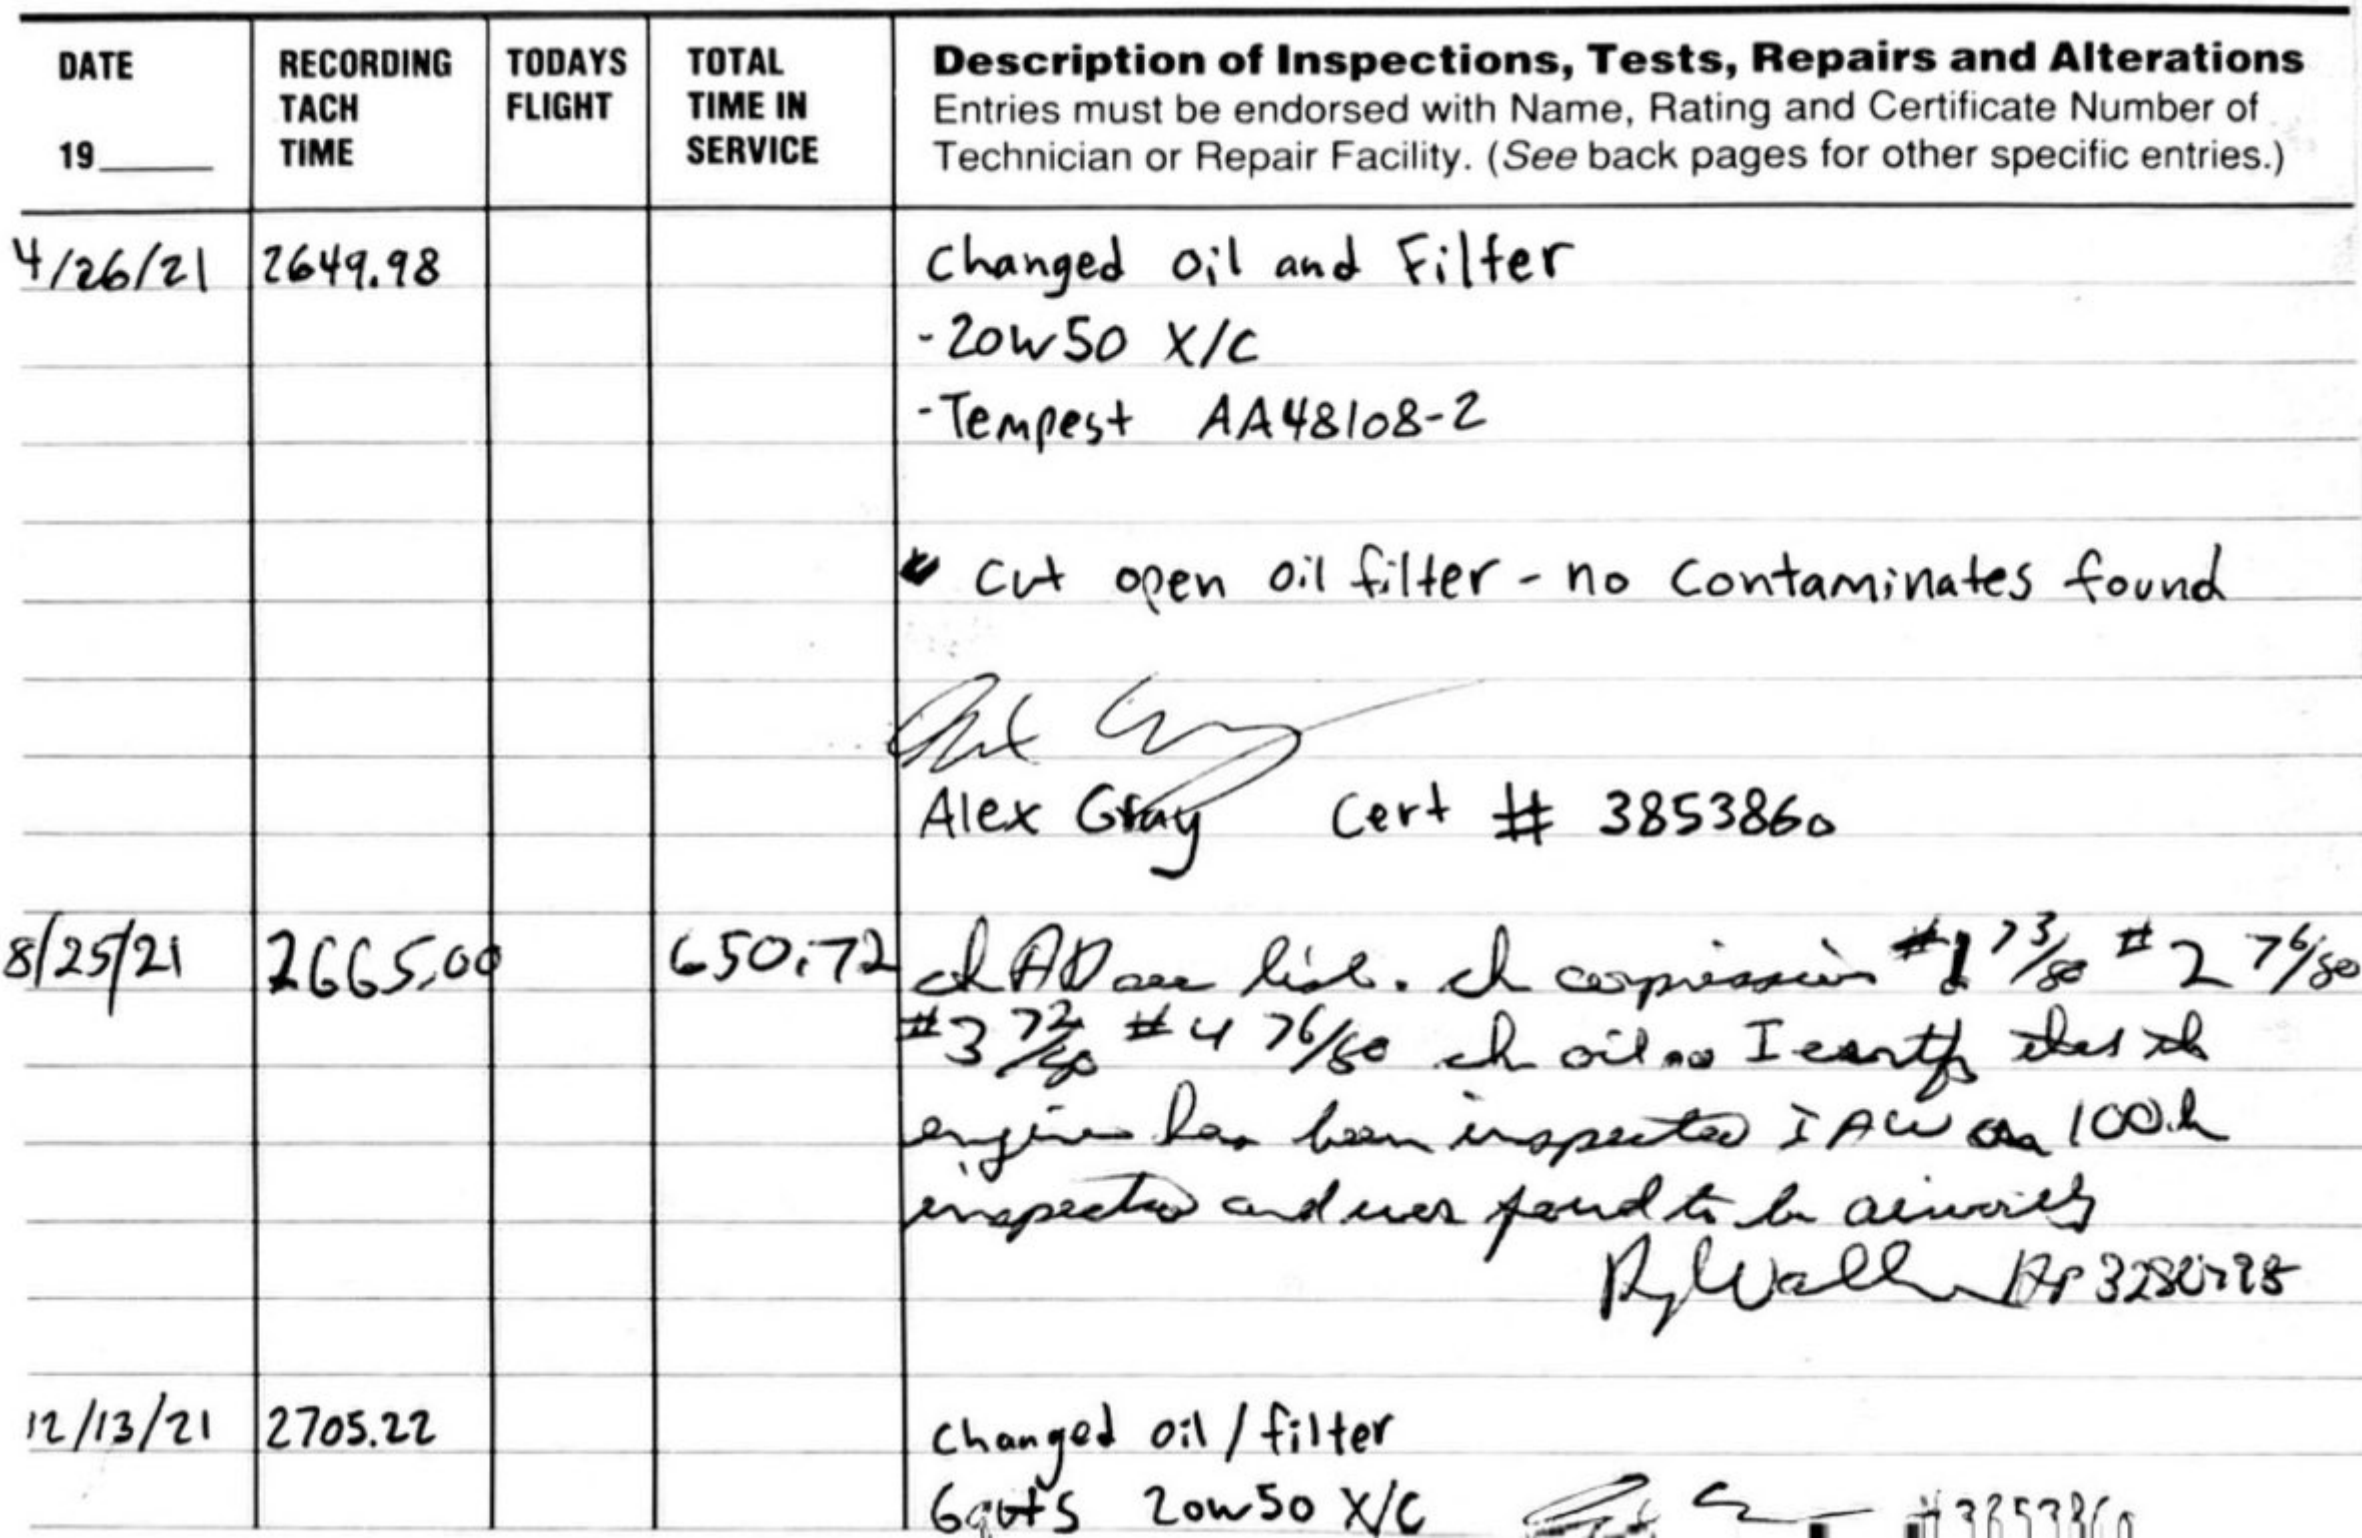 DATE RECORDING TODAYS TOTAL Description of Inspections, Tests, Repairs and Alterations
TACH FLIGHT TIME IN Entries must be endorsed with Name, Rating and Certificate Number of
19____ TIME SERVICE Technician or Repair Facility. (See back pages for other specific entries.)
4/26/21 2649.98 Changed oil and Filter
-20W50 X/C
-Tempest AA48108-2
* Cut open oil filter - no contaminates found
Alex Gray Cert # 3853860
8/25/21 2665.00 650.72 ch AD see list. ch compression #1 73/80 #2 76/80
#3 72/80 #4 76/80 ch oil I certify that th
engine has been inspected IAW an 100 h
inspection and was found to be airworthy
AP
12/13/21 2705.22 Changed oil/filter
6 qts 20W50 X/C #3853860